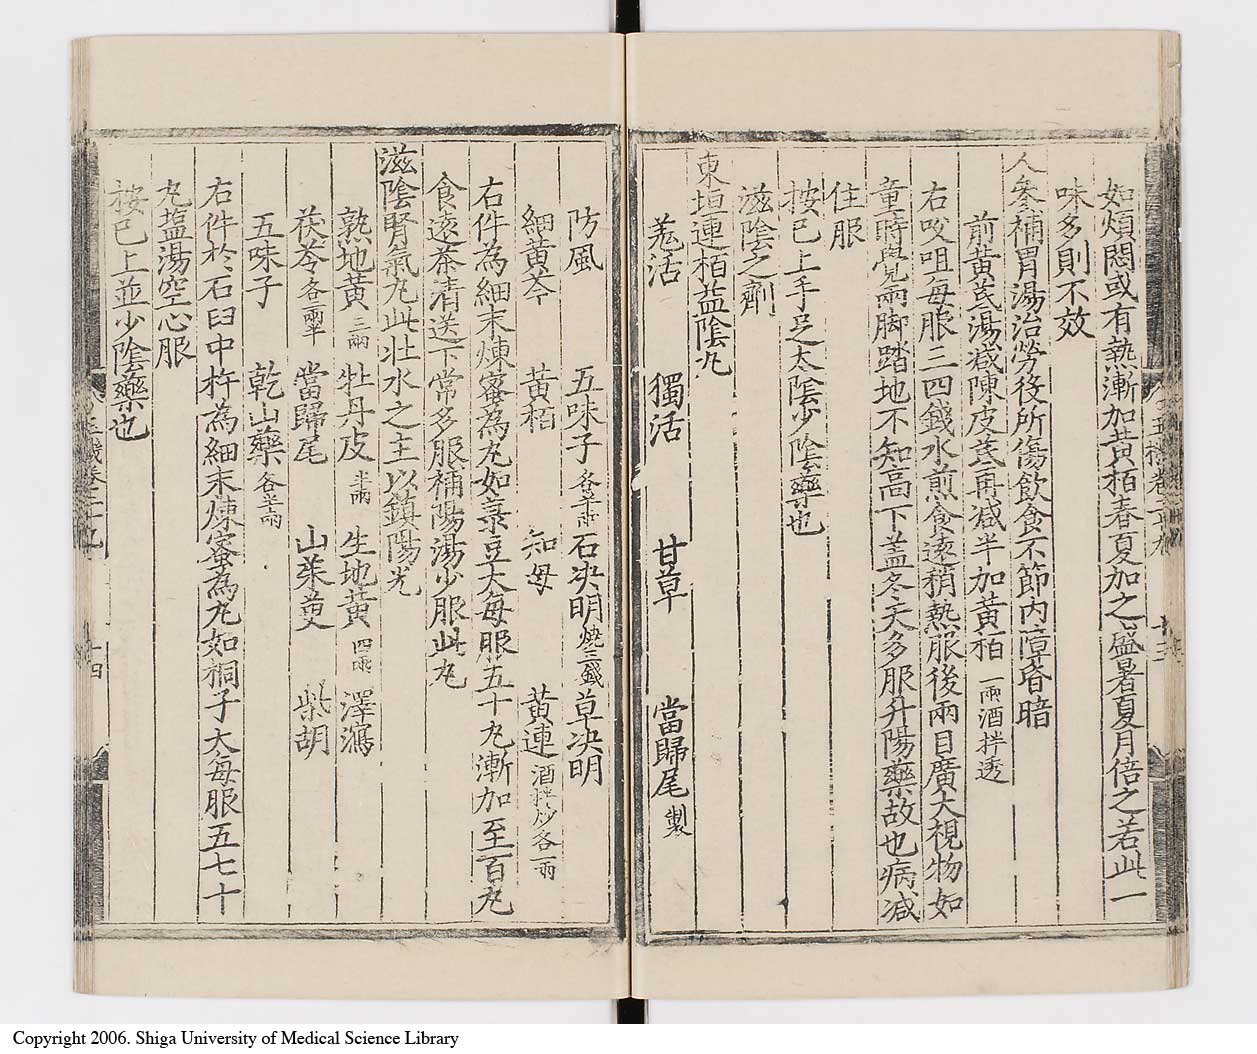 如煩悶或有熱漸加黄栢春夏加之盛暑夏月倍之若此一
味多則不效
人參補胃湯治勞役所傷飲食不節内障昏暗
前黄芪湯減陳皮芪再减半加黄栢一兩酒拌透
右㕮咀毎服三四錢水煎食遠稍熱服後兩目廣大視物如
童時覺兩脚踏地不知高下盖冬天多服升陽藥故也病减
住服
按已上手足太陰少陰藥也
滋陰之劑
東垣連栢益陰丸
羗活 獨活 甘草 當歸尾製
防風 五味子各半兩 石决明燒三錢 草决明
細黄芩 黄栢 知母 黄連酒拌炒各一兩
右件為細末煉蜜為丸如菉豆大毎服五十丸漸加至百丸
食遠茶清送下常多服補陽湯少服此丸
滋陰腎氣丸此壮水之主以鎮陽光
熟地黄三兩 牡丹皮半兩 生地黄四兩 澤瀉
茯苓各半兩 當歸尾 山茱萸 柴胡
五味子 乾山藥各半兩
右件於石臼中杵為細末煉蜜為丸如桐子大毎服五七十
丸塩湯空心服
按已上並少陰藥也
Copyright 2006. Shiga University of Medical Science Library